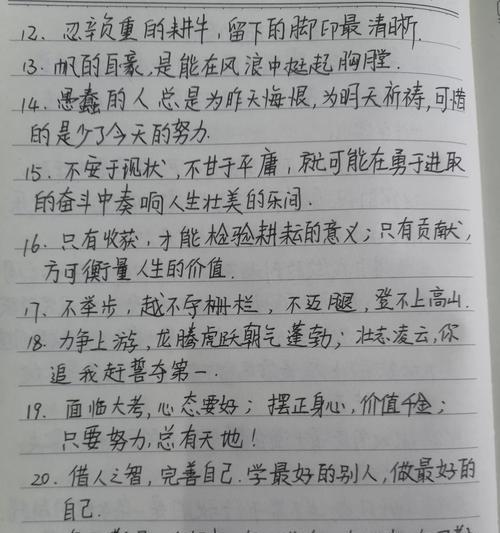 12. 忍辛负重的耕牛，留下的脚印最清晰.
13. 帆的自豪，是能在风浪中挺起胸膛.
14. 愚蠢的人总是为昨天悔恨，为明天祈祷，可惜
的是少了今天的努力.
15. 不安于现状，不甘于平庸，就可能在勇于进取
的奋斗中奏响人生壮美的乐间.
16. 只有收获，才能检验耕耘的意义；只有贡献，
方可衡量人生的价值.
17. 不举步，越不守栅栏，不迈腿，登不上高山.
18. 力争上游，龙腾虎跃朝气蓬勃；壮志凌云，你
追我赶誓夺第一.
19. 面临大考，心态要好；摆正身心，价值千金；
只要努力，总有天地！
20. 借人之智，完善自己.学最好的别人，做最好的
自己.